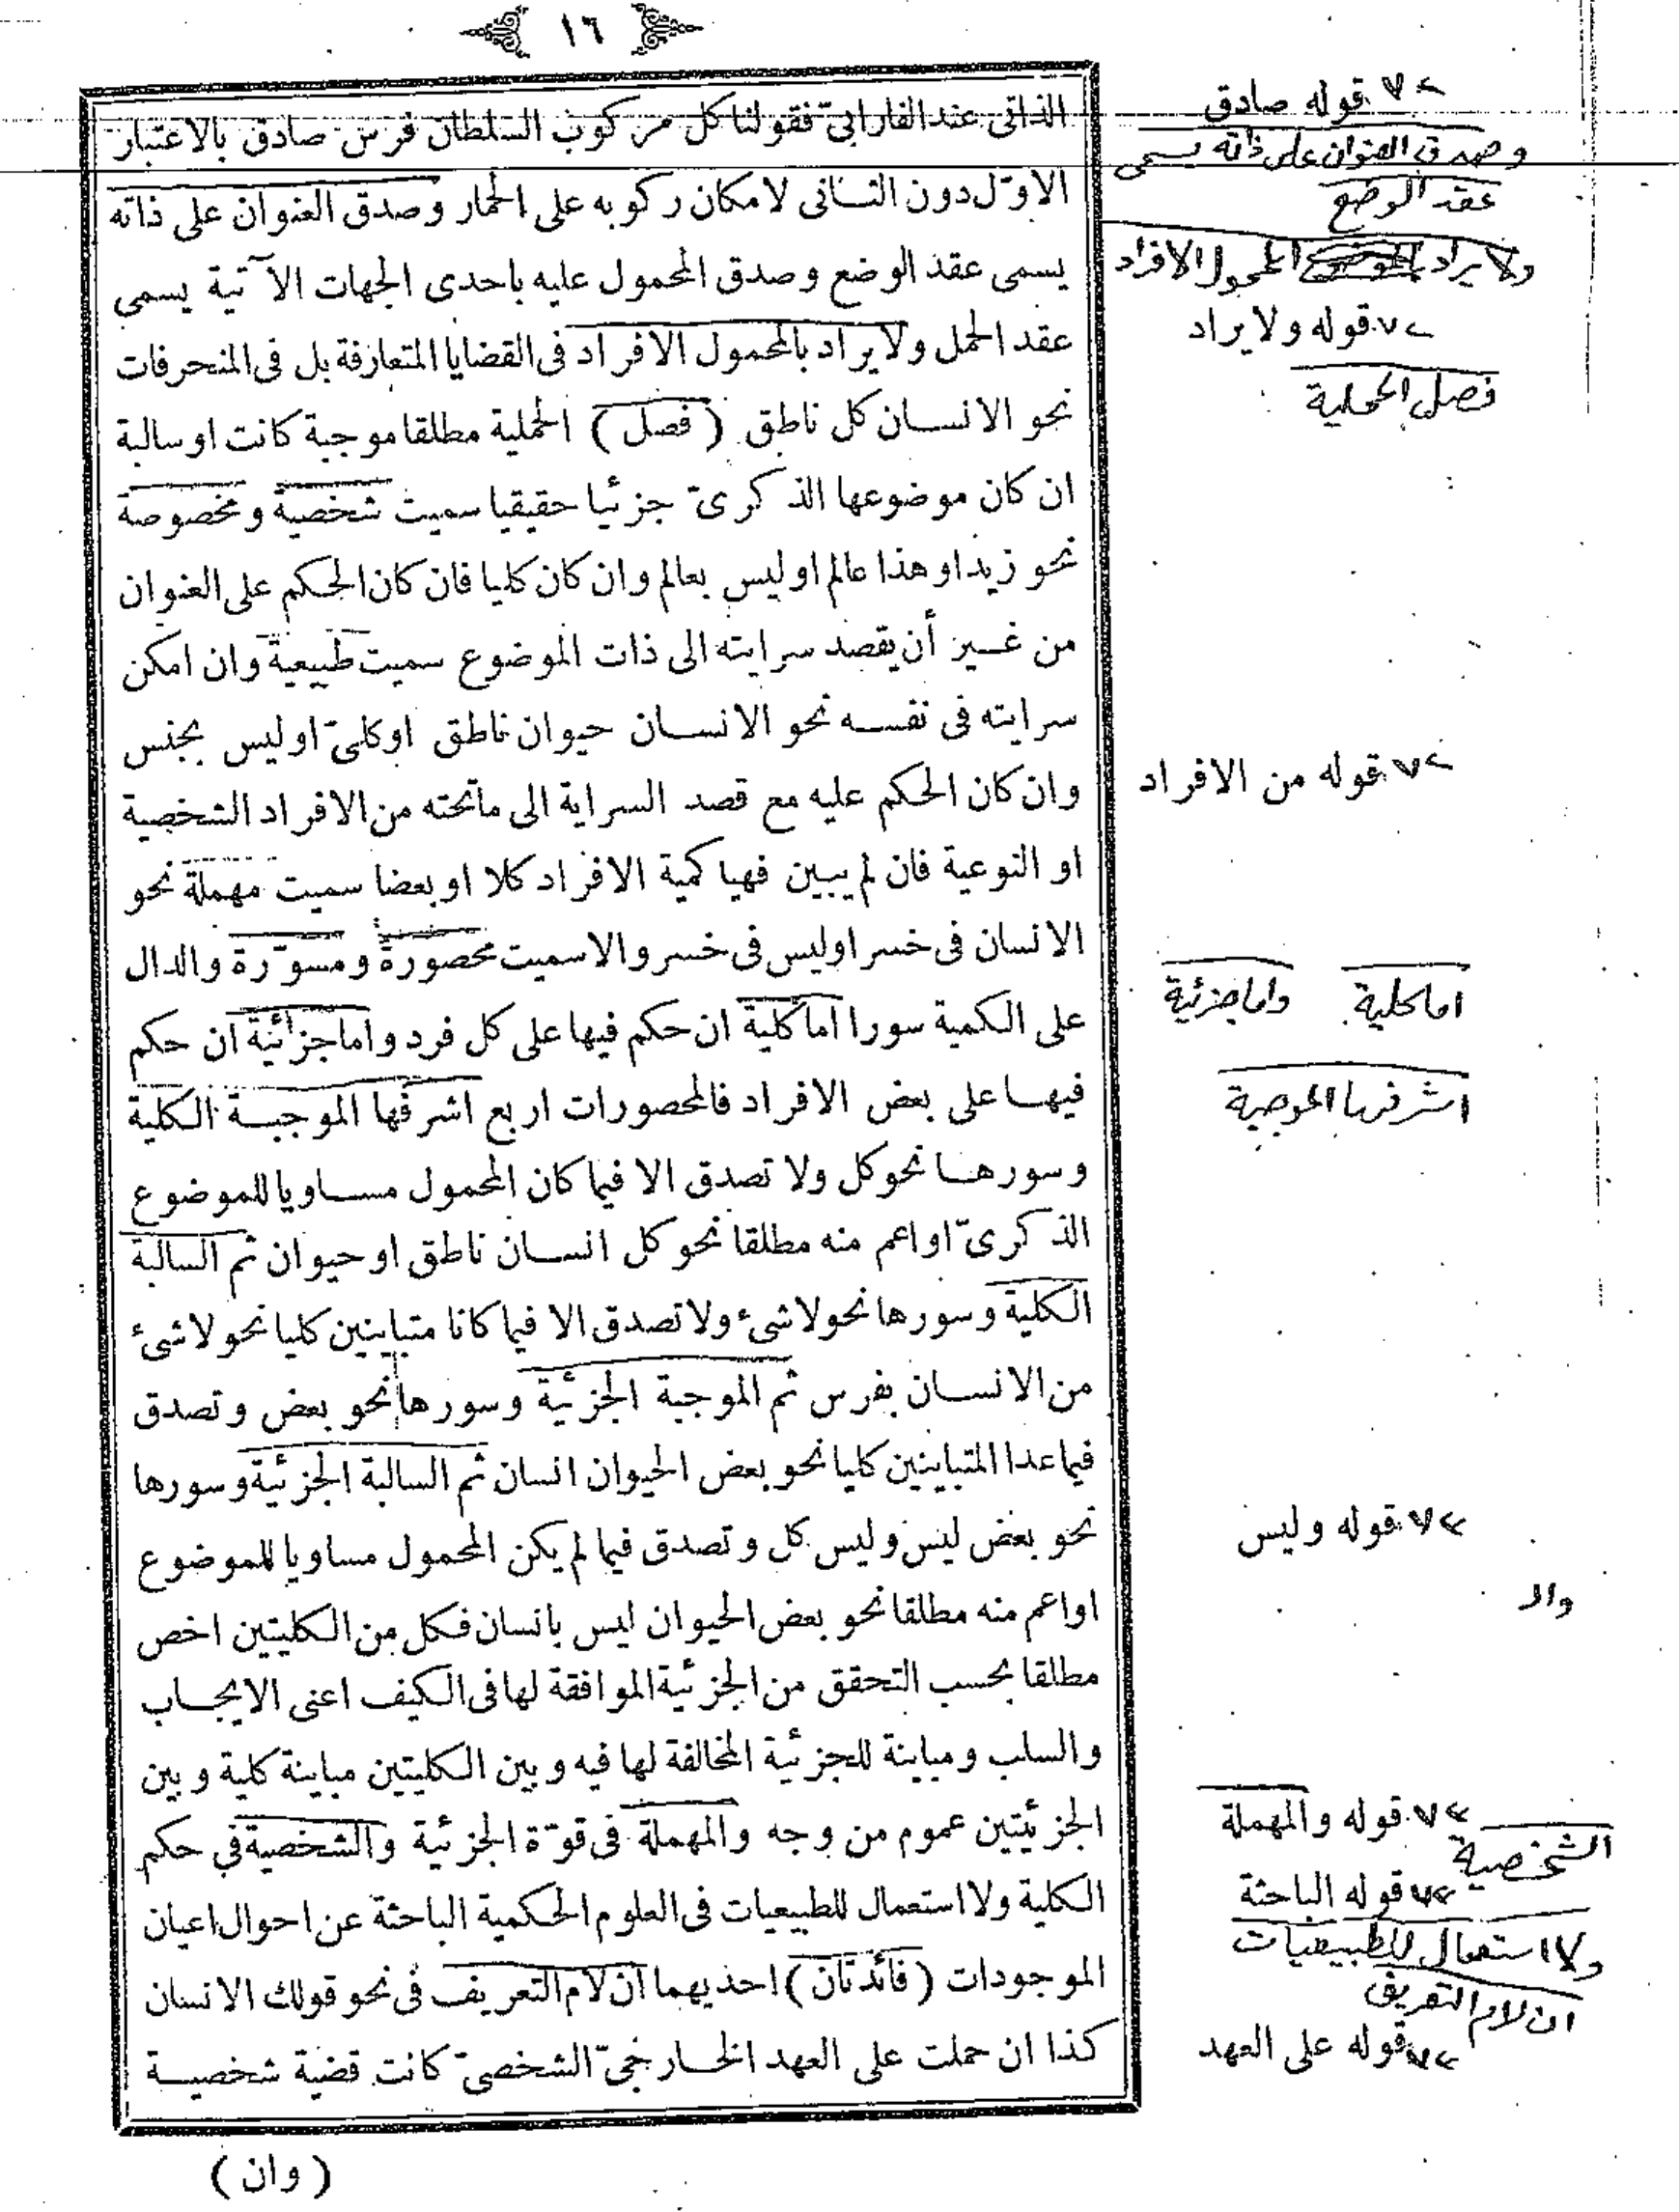 ١٦
الذاتى عند الفارابىّ فقولنا كل مركوب السلطان فرس صادق بالاعتبار
الاوّل دون الثانى لامكان ركوبه على الحمار وصدق العنوان على ذاته
يسمى عقد الوضع وصدق المحمول عليه باحدى الجهات الآتية يسمى
عقد الحمل ولايراد بالمحمول الافراد فى القضايا المتعارفة بل فى المنحرفات
نحو الانسان كل ناطق (فصل) الحملية مطلقا موجبة كانت او سالبة
ان كان موضوعها الذكرىّ جزئيا حقيقيا سميت شخصية ومخصوصة
نحو زيد او هذا عالم او ليس بعالم وان كان كليا فان كان الحكم على العنوان
من غير أن يقصد سرايته الى ذات الموضوع سميت طبيعية وان امكن
سرايته فى نفسه نحو الانسان حيوان ناطق اوكلىّ اوليس بجنس
وان كان الحكم عليه مع قصد السراية الى ماتحته من الافراد الشخصية
او النوعية فان لم يبين فيها كمية الافراد كلا او بعضا سميت مهملة نحو
الانسان فى خسر اوليس فى خسر والا سميت محصورة ومسوّرة والدال
على الكمية سورا اما كلية ان حكم فيها على كل فرد واما جزئية ان حكم
فيها على بعض الافراد فالمحصورات اربع اشرفها الموجبة الكلية
وسورها نحو كل ولا تصدق الا فيما كان المحمول مساويا للموضوع
الذكرىّ او اعم منه مطلقا نحو كل انسان ناطق او حيوان ثم السالبة
الكلية وسورها نحو لاشئ ولا تصدق الا فيما كانا متباينين كليا نحو لاشئ
من الانسان بفرس ثم الموجبة الجزئية وسورها نحو بعض وتصدق
فيما عدا المتباينين كليا نحو بعض الحيوان انسان ثم السالبة الجزئية وسورها
نحو بعض ليس وليس كل وتصدق فيما لم يكن المحمول مساويا للموضوع
او اعم منه مطلقا نحو بعض الحيوان ليس بانسان فكل من الكليتين اخص
مطلقا بحسب التحقق من الجزئية الموافقة لها فى الكيف اعنى الايجاب
والسلب ومباينة للجزئية المخالفة لها فيه وبين الكليتين مباينة كلية وبين
الجزئيتين عموم من وجه والمهملة فى قوّة الجزئية والشخصية في حكم
الكلية ولا استعمال للطبيعيات فى العلوم الحكمية الباحثة عن احوال اعيان
الموجودات (فائدتان) احديهما ان لام التعريف فى نحو قولك الانسان
كذا ان حملت على العهد الخارجىّ الشخصىّ كانت قضية شخصية
(وان)
٧ قوله صادق
وصدق العنوان على ذاته يسمى
عقد الوضع
ولا يراد المحمول الافراد
٧ قوله ولا يراد
فصل الحملية
٧ قوله من الافراد
اما كلية واما جزئية
اشرفها الموجبة
٧ قوله وليس
٧ قوله والمهملة
الشخصية
٧ قوله الباحثة
ولا استعمال للطبيعيات
ان لام التعريف
٧ قوله على العهد